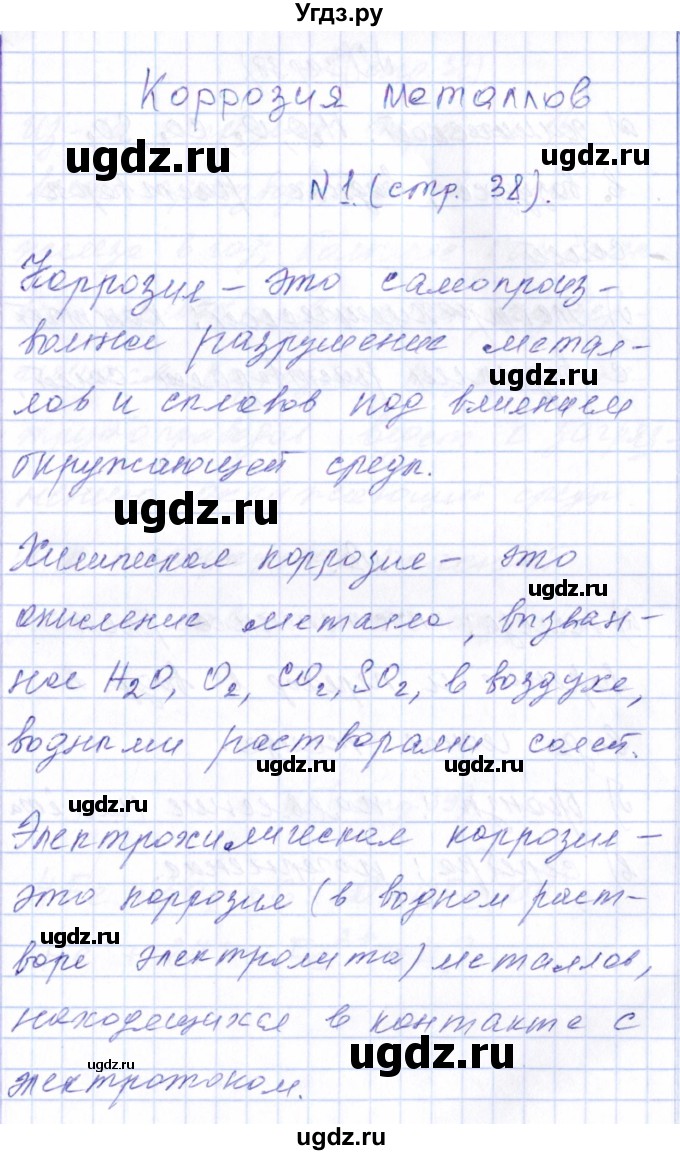 Угдз.ру
Коррозия металлов
ugdz.ru
ugdz.ru
№1. (стр. 38).
Коррозия – это самопроиз-
вольное разрушение метал-
ugdz.ru
лов и сплавов под влиянием
окружающей среды.
ugdz.ru
Химическая коррозия – это
ugdz.ru
окисление металла, вызван-
ное H₂O, O₂, CO₂, SO₂, в воздухе,
водными растворами солей.
ugdz.ru
ugdz.ru
ugdz.ru
Электрохимическая коррозия –
это коррозия (в водном раст-
ugdz.ru
воре электролита) металлов,
находящихся в контакте с
ugdz.ru
ugdz.ru
электротоком.
ugdz.ru